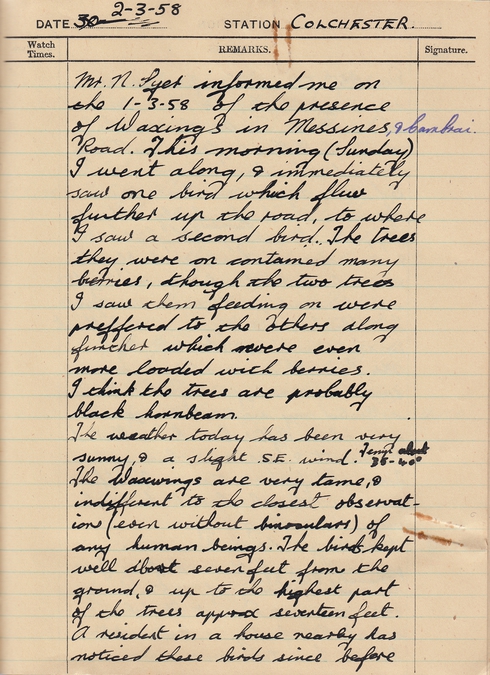 DATE 30 2-3-58 STATION COLCHESTER.
Watch Times. REMARKS. Signature.
Mr. N. Syer informed me on
the 1-3-58 of the presence
of Waxings in Messines, & Cambrai.
Road. This morning (Sunday)
I went along, & immediately
saw one bird which flew
further up the road, to where
I saw a second bird. The trees
they were on contained many
berries, though the two trees
I saw them feeding on were
preffered to the others along
further which were even
more loaded with berries.
I think the trees are probably
black hornbeam.
The weather today has been very
sunny, & a slight S.E. wind. Temp. about 35-40°
The Waxwings are very tame, &
indifferent to the closest observat-
ion (even without binoculars) of
any human beings. The birds kept
well about seven feet from the
ground, & up to the highest part
of the trees approx seventeen feet.
A resident in a house nearby has
noticed these birds since before